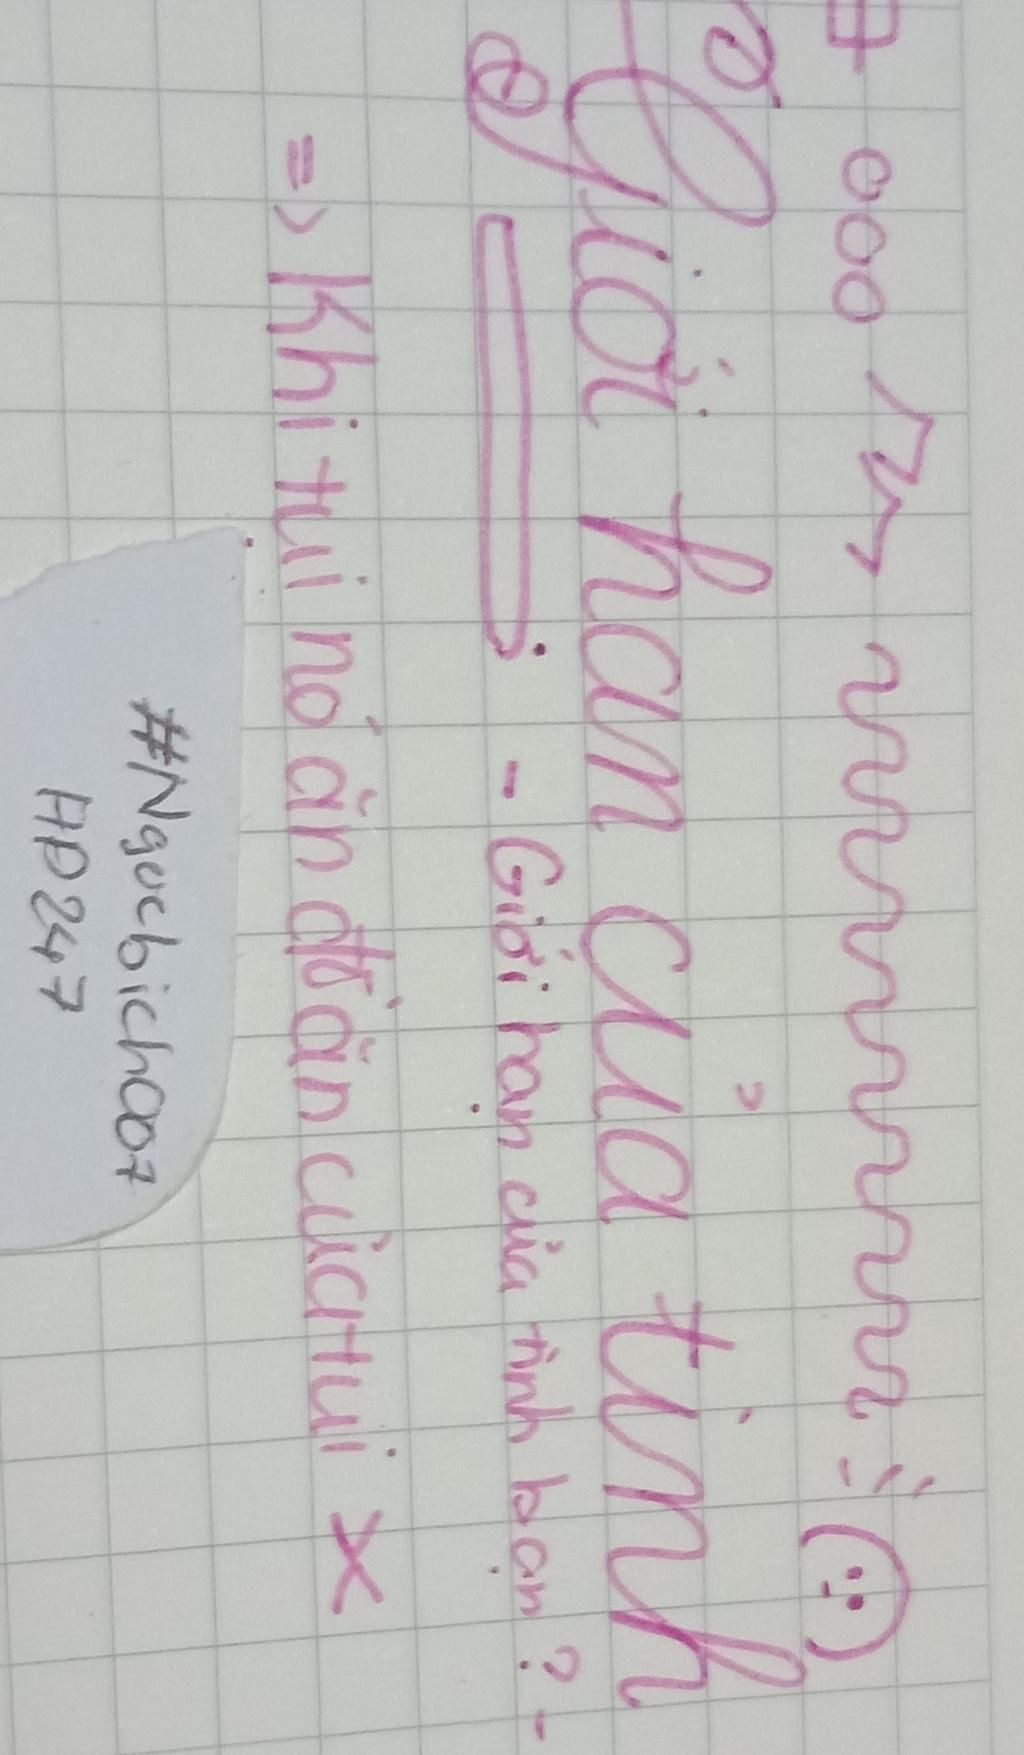 Giới hạn của tình
- Giới hạn của tình bạn? -
=> Khi tui nó ăn đồ ăn của tui x
#Ngocbich007
HD247